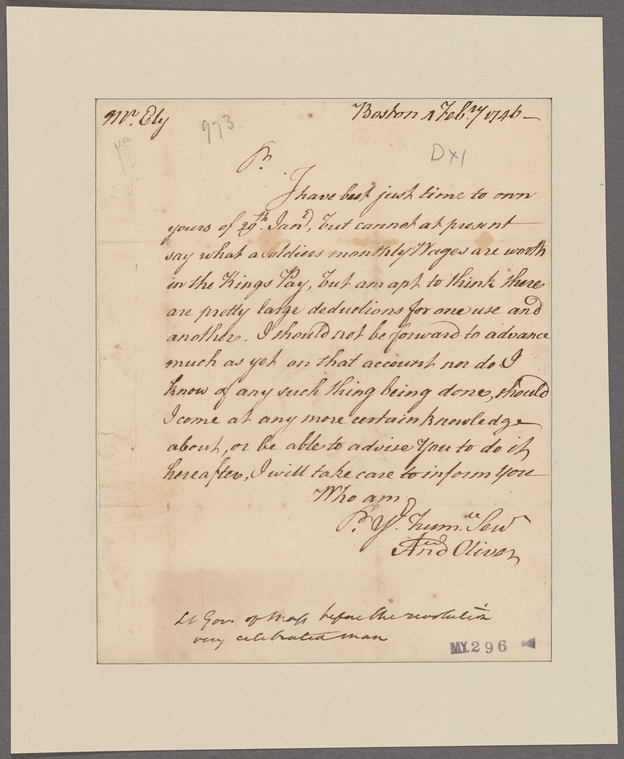 Mr. Ely
Boston 4 Feb.ry 1746
973
DXI
Sr.
I have but just time to own
yours of 29th. Jan.d, but cannot at present
say what a Soldiers monthly Wages are worth
in the Kings Pay, but am apt to think there
are pretty large deductions for one use and
another. I should not be forward to advance
much as yet on that account nor do I
know of any such thing being done, should
I come at any more certain knowledge
about, or be able to advise You to do it
hereafter, I will take care to inform You
Who am
Sr. Yr. Hum.le Serv
And Oliver
Lt Gov. of Mass before the revolution
very celebrated man
MY.296